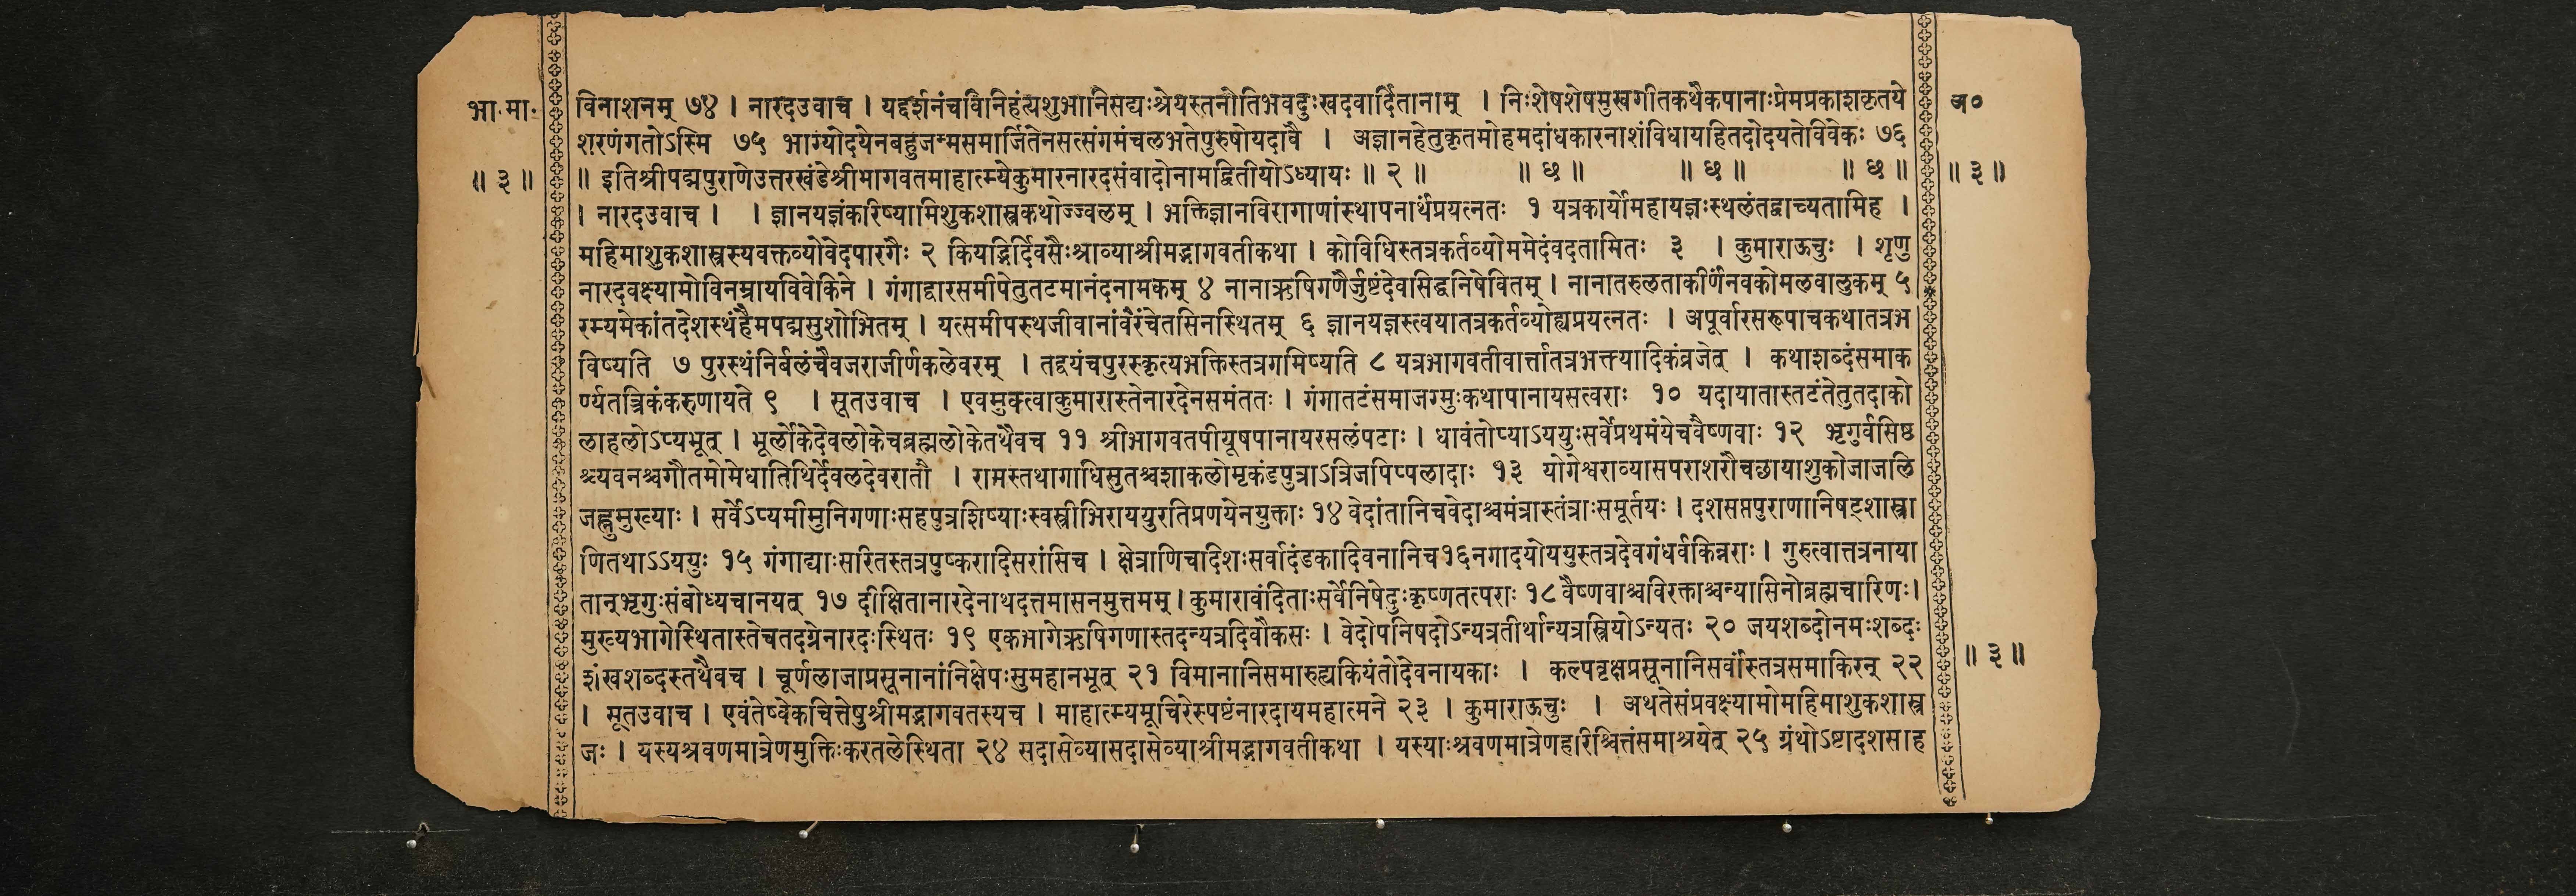 भा.मा. विनाशनम् ७४ । नारदउवाच । यद्दर्शनंचविनिहंत्यशुभानिसद्यःश्रेयस्तनोतिभवदुःखदवार्दितानाम् । निःशेषशेषमुखगीतकथैकपानाःप्रेमप्रकाशकृतये अ०
शरणंगतोऽस्मि ७५ भाग्योदयेनबहुजन्मसमार्जितेनसत्संगमंचलभतेपुरुषोयदावै । अज्ञानहेतुकृतमोहमदांधकारनाशंविधायहितदोदयतेविवेकः ७६
॥ ३ ॥ ॥ इतिश्रीपद्मपुराणेउत्तरखंडेश्रीमागवतमाहात्म्येकुमारनारदसंवादोनामद्वितीयोऽध्यायः ॥ २ ॥ ॥ छ ॥ ॥ छ ॥ ॥ छ ॥ ॥ ३ ॥
। नारदउवाच । । ज्ञानयज्ञंकरिष्यामिशुकशास्त्रकथोज्ज्वलम् । भक्तिज्ञानविरागाणांस्थापनार्थंप्रयत्नतः १ यत्रकार्योमहायज्ञःस्थलंतद्वाच्यतामिह ।
महिमाशुकशास्त्रस्यवक्तव्योवेदपारगैः २ कियद्भिर्दिवसैःश्राव्याश्रीमद्भागवतीकथा । कोविधिस्तत्रकर्तव्योममेदंवदतामितः ३ । कुमाराऊचुः । शृणु
नारदवक्ष्यामोविनम्रायविवेकिने । गंगाद्वारसमीपेतुतटमानंदनामकम् ४ नानाऋषिगणैर्जुष्टंदेवसिद्धनिषेवितम् । नानातरुलताकीर्णंनवकोमलवालुकम् ५
रम्यमेकांतदेशस्थंहैमपद्मसुशोभितम् । यत्समीपस्थजीवानांवैरंचेतसिनस्थितम् ६ ज्ञानयज्ञस्त्वयातत्रकर्तव्योह्यप्रयत्नतः । अपूर्वारसरूपाचकथातत्रभ
विष्यति ७ पुरस्थंनिर्बलंचैवजराजीर्णकलेवरम् । तद्द्वयंचपुरस्कृत्यभक्तिस्तत्रगमिष्यति ८ यत्रभागवतीवार्त्तातत्रभक्त्यादिकंव्रजेत् । कथाशब्दंसमाक
र्ण्यतत्त्रिकंकरुणायते ९ । सूतउवाच । एवमुक्त्वाकुमारास्तेनारदेनसमंततः । गंगातटंसमाजग्मुःकथापानायसत्वराः १० यदायातास्तटंतेतुतदाको
लाहलोऽप्यभूत् । भूर्लोकेदेवलोकेचब्रह्मलोकेतथैवच ११ श्रीभागवतपीयूषपानायरसलंपटाः । धावंतोप्याऽययुःसर्वेप्रथमंयेचवैष्णवाः १२ भृगुर्वसिष्ठ
श्च्यवनश्चगौतमोमेधातिथिर्देवलदेवरातौ । रामस्तथागाधिसुतश्चशाकलोमृकंडपुत्राऽत्रिजपिप्पलादाः १३ योगेश्वराव्यासपराशरौचछायाशुकोजाजलि
जह्नुमुख्याः । सर्वेऽप्यमीमुनिगणाःसहपुत्रशिष्याःस्वस्त्रीभिराययुरतिप्रणयेनयुक्ताः १४ वेदांतानिचवेदाश्चमंत्रास्तंत्राःसमूर्तयः । दशसप्तपुराणानिषट्शास्त्रा
णितथाऽऽययुः १५ गंगाद्याःसरितस्तत्रपुष्करादिसरांसिच । क्षेत्राणिचादिशःसर्वादंडकादिवनानिच१६नगादयोययुस्तत्रदेवगंधर्वकिन्नराः । गुरुत्वात्तत्रनाया
तान्भृगुःसंबोध्यचानयत् १७ दीक्षितानारदेनाथदत्तमासनमुत्तमम् । कुमारावंदिताःसर्वेनिषेदुःकृष्णतत्पराः १८ वैष्णवाश्चविरक्ताश्चन्यासिनोब्रह्मचारिणः।
मुख्यभागेस्थितास्तेचतदग्रेनारदःस्थितः १९ एकभागेऋषिगणास्तदन्यत्रदिवौकसः । वेदोपनिषदोऽन्यत्रतीर्थान्यत्रस्त्रियोऽन्यतः २० जयशब्दोनमःशब्दः
शंखशब्दस्तथैवच । चूर्णलाजाप्रसूनानांनिक्षेपःसुमहानभूत् २१ विमानानिसमारुह्यकियंतोदेवनायकाः । कल्पवृक्षप्रसूनानिसर्वांस्तत्रसमाकिरन् २२ ॥ ३ ॥
। सूतउवाच । एवंतेष्वेकचित्तेषुश्रीमद्भागवतस्यच । माहात्म्यमूचिरेस्पष्टंनारदायमहात्मने २३ । कुमाराऊचुः । अथतेसंप्रवक्ष्यामोमहिमाशुकशास्त्र
जः । यस्यश्रवणमात्रेणमुक्तिःकरतलेस्थिता २४ सदासेव्यासदासेव्याश्रीमद्भागवतीकथा । यस्याःश्रवणमात्रेणहरिश्चित्तंसमाश्रयेत् २५ ग्रंथोऽष्टादशसाह